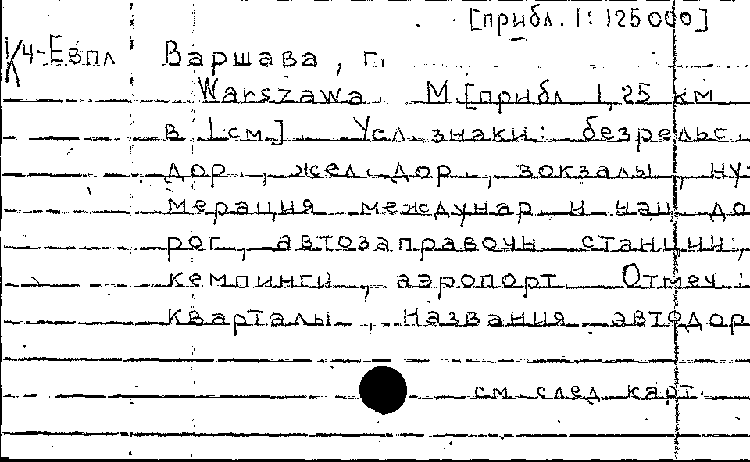 [прибл. 1:125000]
К4-Евпл Варшава, г.
Warszawa. М.[прибл 1,25 км
в 1 см.] Усл. знаки: безрельс.
дор., жел. дор., вокзалы, ну-
мерация междунар и нац до
рог, автозаправочн станции,
кемпинги, аэропорт. Отмеч:
кварталы, названия автодор
см след карт.